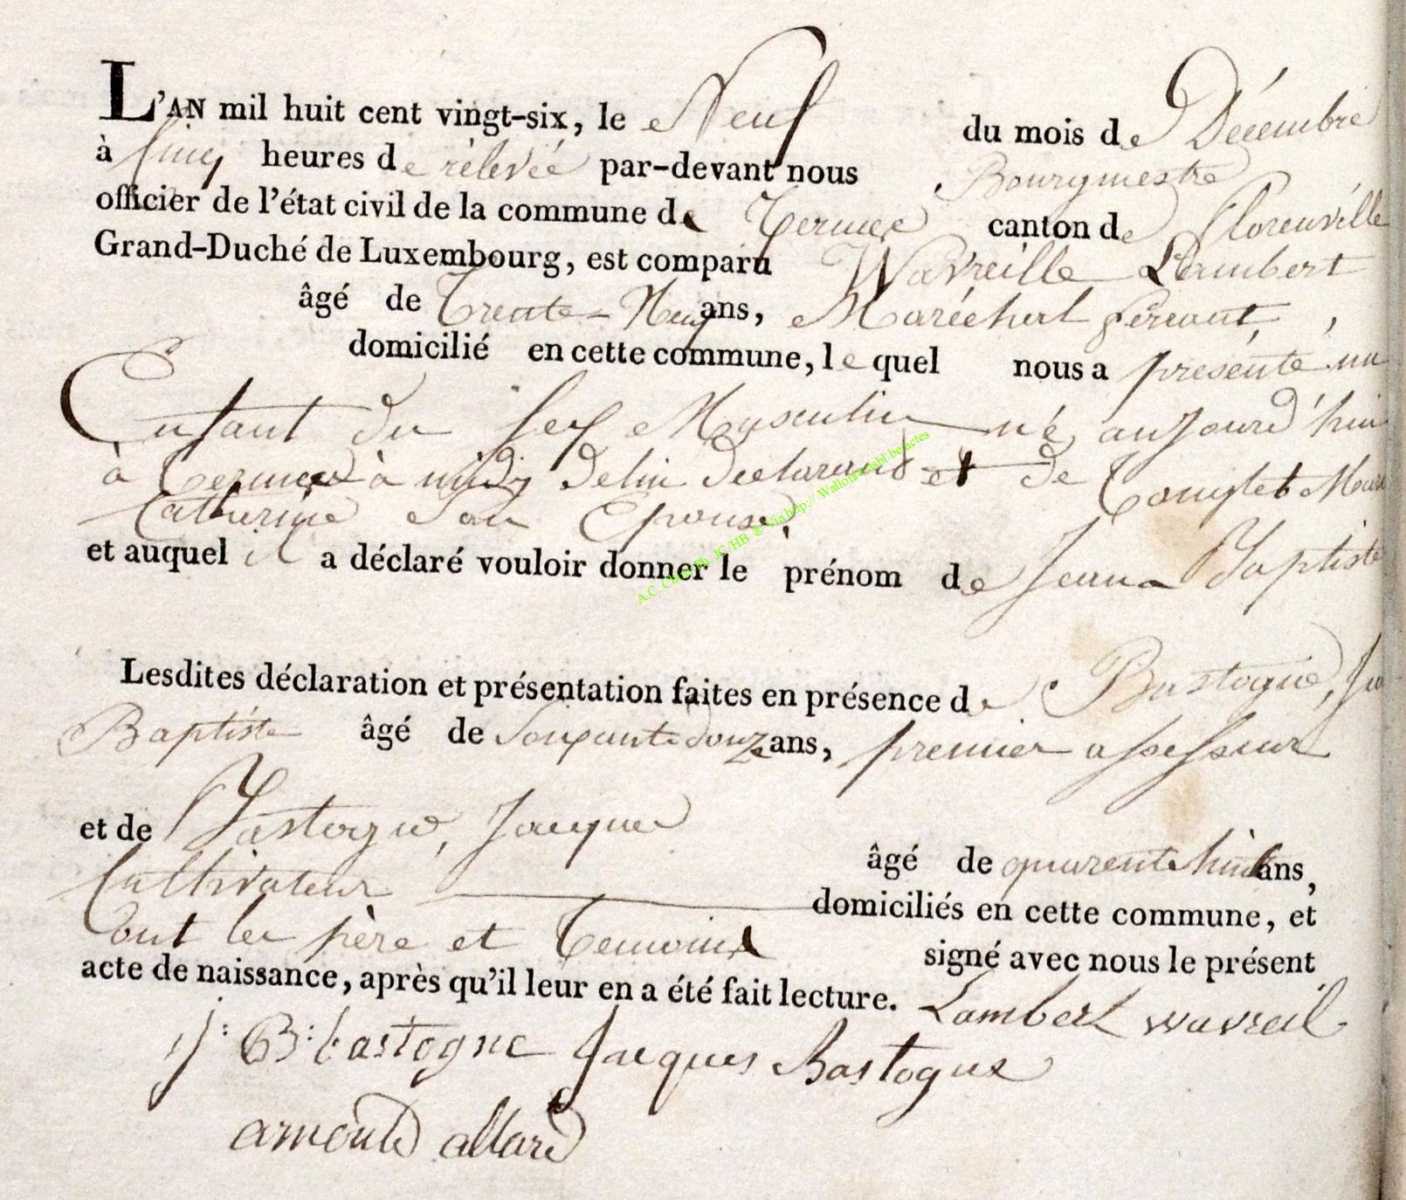 L'AN mil huit cent vingt-six, le Neuf du mois de Décembre
à cinq heures de rélevée par-devant nous Bourgmestre
officier de l'état civil de la commune de Termes canton de Florenville
Grand-Duché de Luxembourg, est comparu Wavreille Lambert
âgé de Trente-Neuf ans, Maréchal ferrant,
domicilié en cette commune, lequel nous a présenté un
Enfant du sex Masculin né aujourd'hui
à Termes à midy de lui declarant et de Marie
Catherine son Epouse,
et auquel il a déclaré vouloir donner le prénom de Jean Baptiste
Lesdites déclaration et présentation faites en présence de Bastogne, Jn
Baptiste âgé de Soixante douze ans, premier assesseur
et de Bastogne, Jacques
Cultivateur âgé de quarente huit ans,
domiciliés en cette commune, et
ont les père et Temoins signé avec nous le présent
acte de naissance, après qu'il leur en a été fait lecture. Lambert wavreil
j: B: bastogne Jacques Bastogne
arnould allard